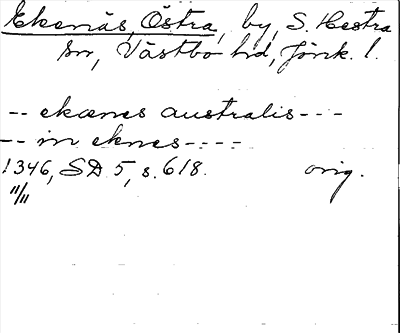 Ekenäs, Östra, by, S. Hestra
sn, Västbo hd, Jönk. l.
-- ekænes australis ---
-- in eknes ----
1346, SD 5, s. 618. orig.
11/11